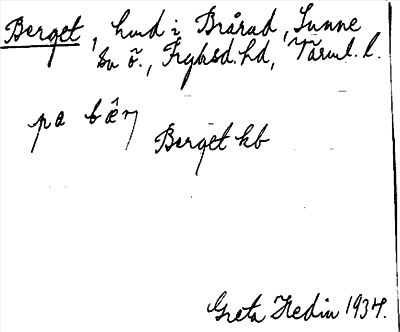 Berget, hmd i Brårud, Sunne
sn ö., Fryksd. hd, Värml. l.
pa bæ̂ɳ
Berget kb
Greta Hedin 1934.